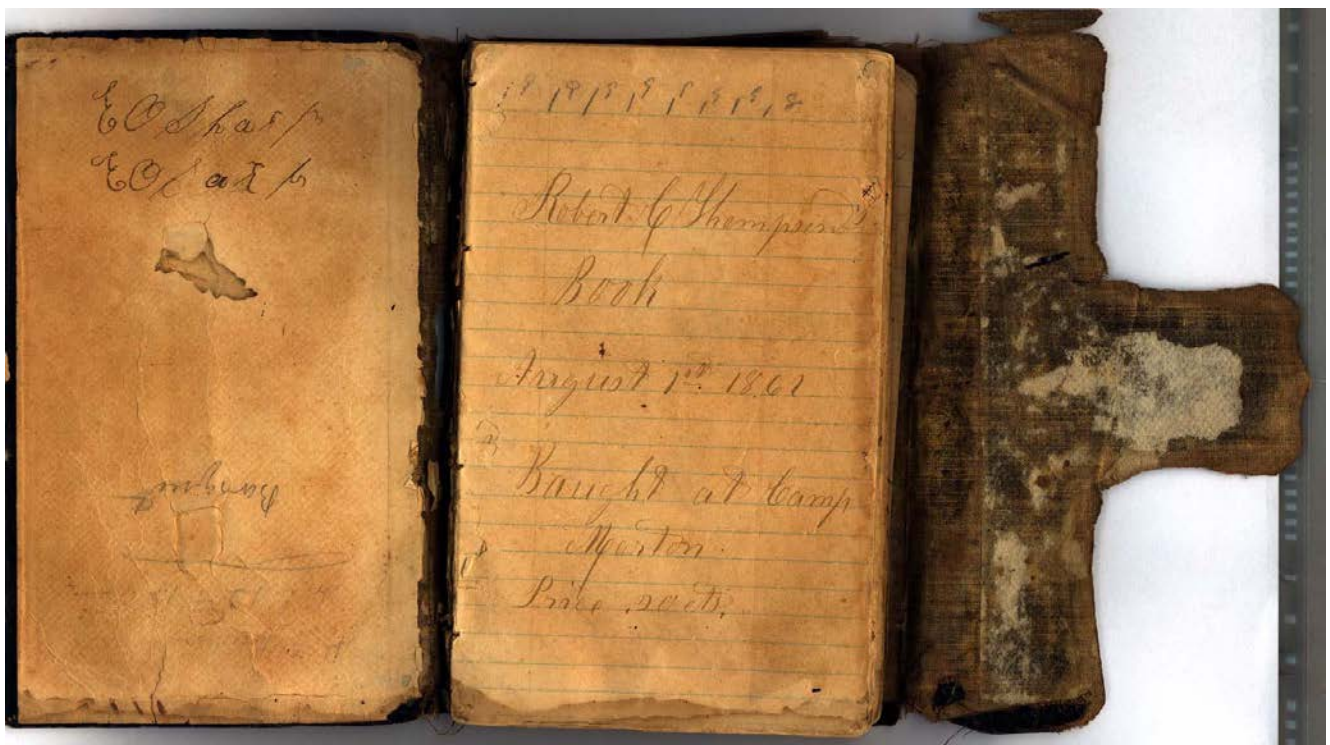 EO Sharp
EO Sarp
Robert C Thompson
Book
August 1st 1862
Baught at Camp
Morton
Price 20 cts.